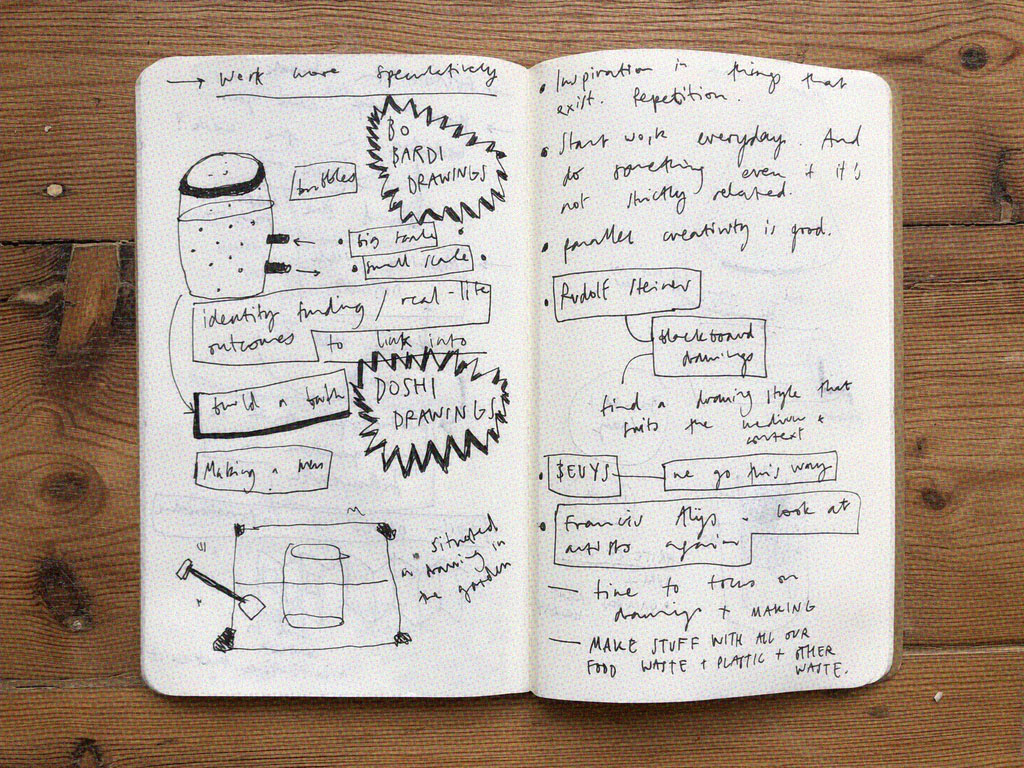 → Work more speculatively
BO
BARDI
DRAWINGS
bubbles
• big scale
• small scale •
identity funding / real-life
outcomes to link into
build a bath
DOSHI
DRAWINGS
Making a mess
• situated
a drawing in
the garden
• Inspiration in things that
exist. Repetition.
• Start work everyday. And
do something even if it's
not strictly related.
• parallel creativity is good.
• Rudolf Steiner
blackboard
drawings
find a drawing style that
suits the medium +
context
• $EUYS we go this way
• Francis Alÿs - look at
artists again
— time to focus on
drawings + MAKING
— MAKE STUFF WITH ALL OUR
FOOD WASTE + PLASTIC + OTHER
WASTE.